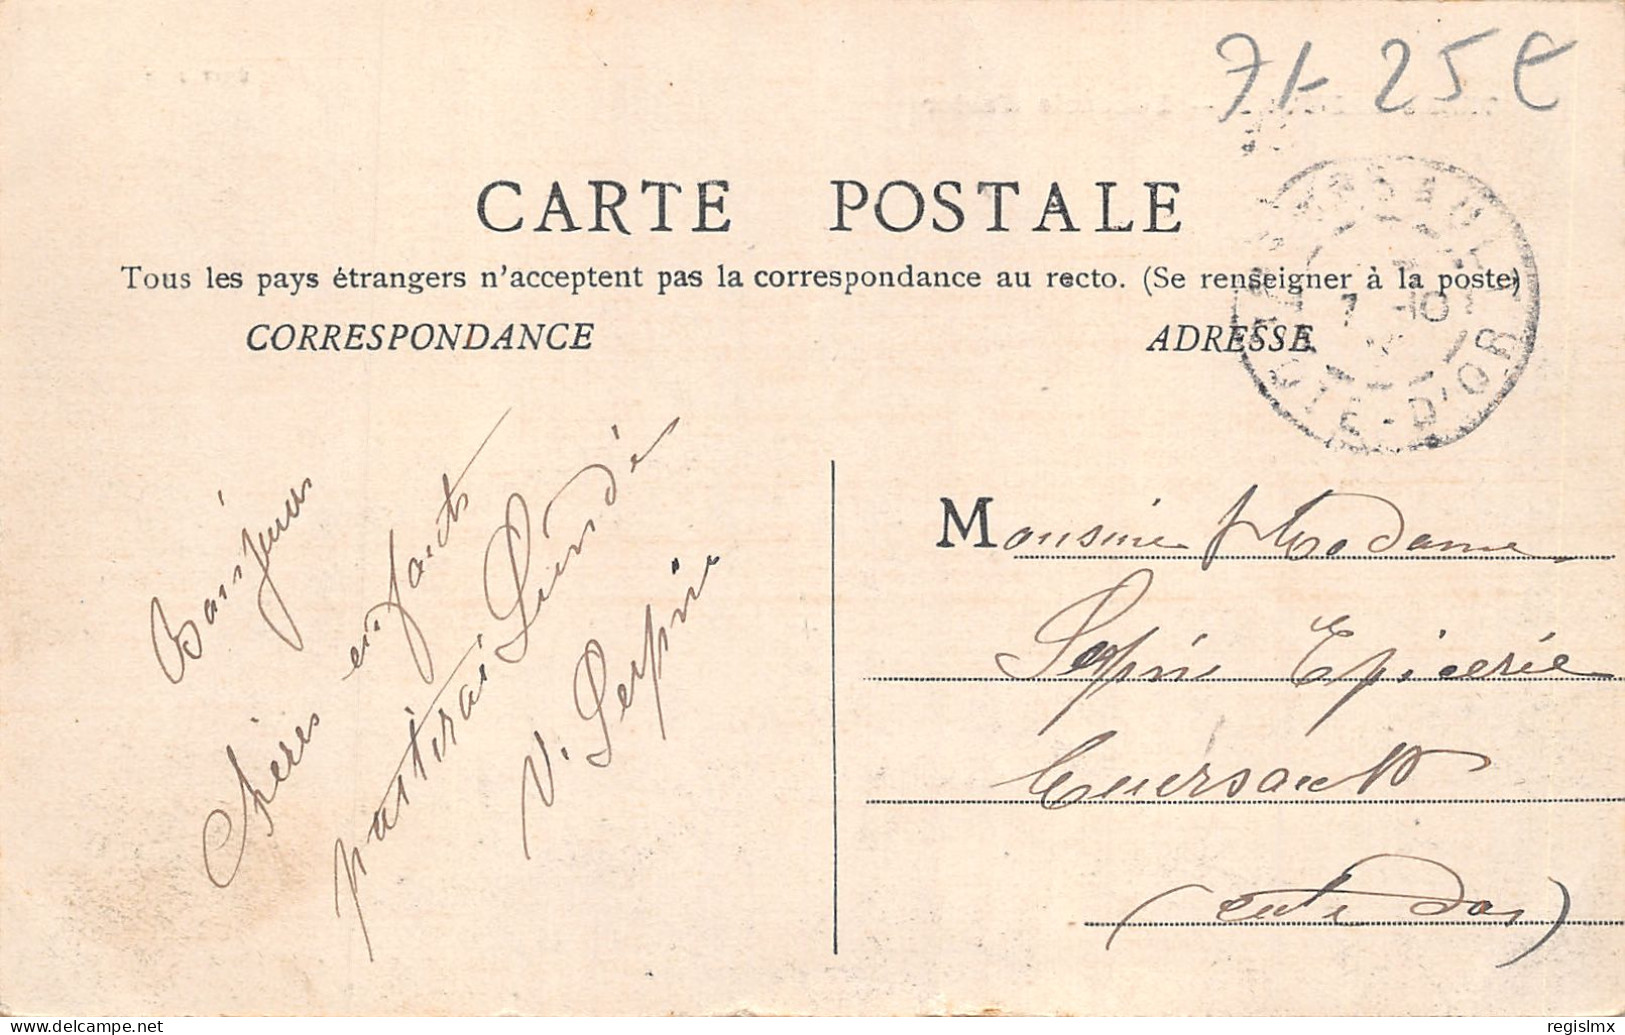 71 25 €
CARTE POSTALE
Tous les pays étrangers n'acceptent pas la correspondance au recto. (Se renseigner à la poste)
CORRESPONDANCE
ADRESSE
CÔTE-D'OR
Bonsjours
chères enfants
partirai Lundé
V. Lepine
Monsieur Madame
Lepine Epicerie
Cuersault
(cote dor)
www.delcampe.net
regislmx